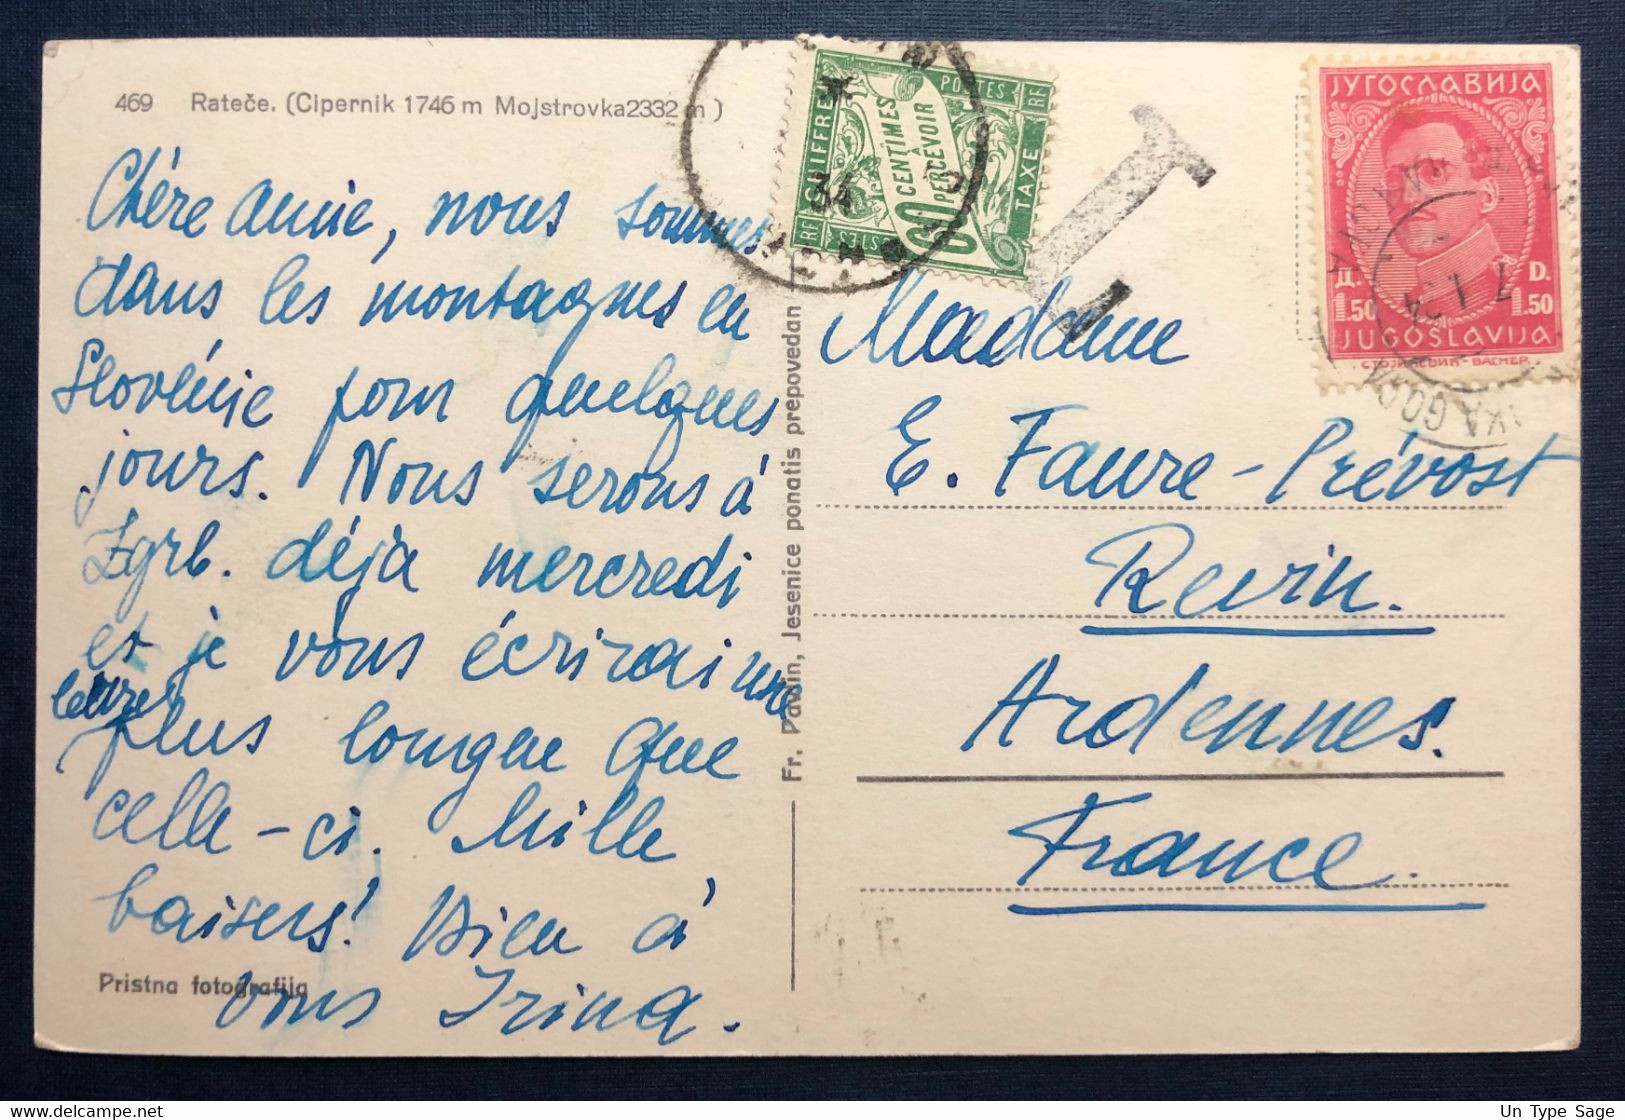 469 Rateče. (Cipernik 1746 m Mojstrovka 2332 m)
Chère Annie, nous sommes
dans les montagnes en
Slovénie pour quelques
jours. Nous serons à
Zgrb. déja mercredi
et je vous écrirai une
lettre
plus longue que
celle-ci. Mille
baisers! Bien à
vous Irina.
Pristna fotografija
Fr. Pavlin, Jesenice ponatis prepovedan
CHIFFRE
POSTES
TAXE
RF
RF
60 CENTIMES
À
PERCEVOIR
34
T
ЈУГОСЛАВИЈА
Д. D.
1.50 1.50
JUGOSLAVIJA
7 I 34
Madame
E. Faure-Prévost
Revin.
Ardennes.
France.
Un Type Sage